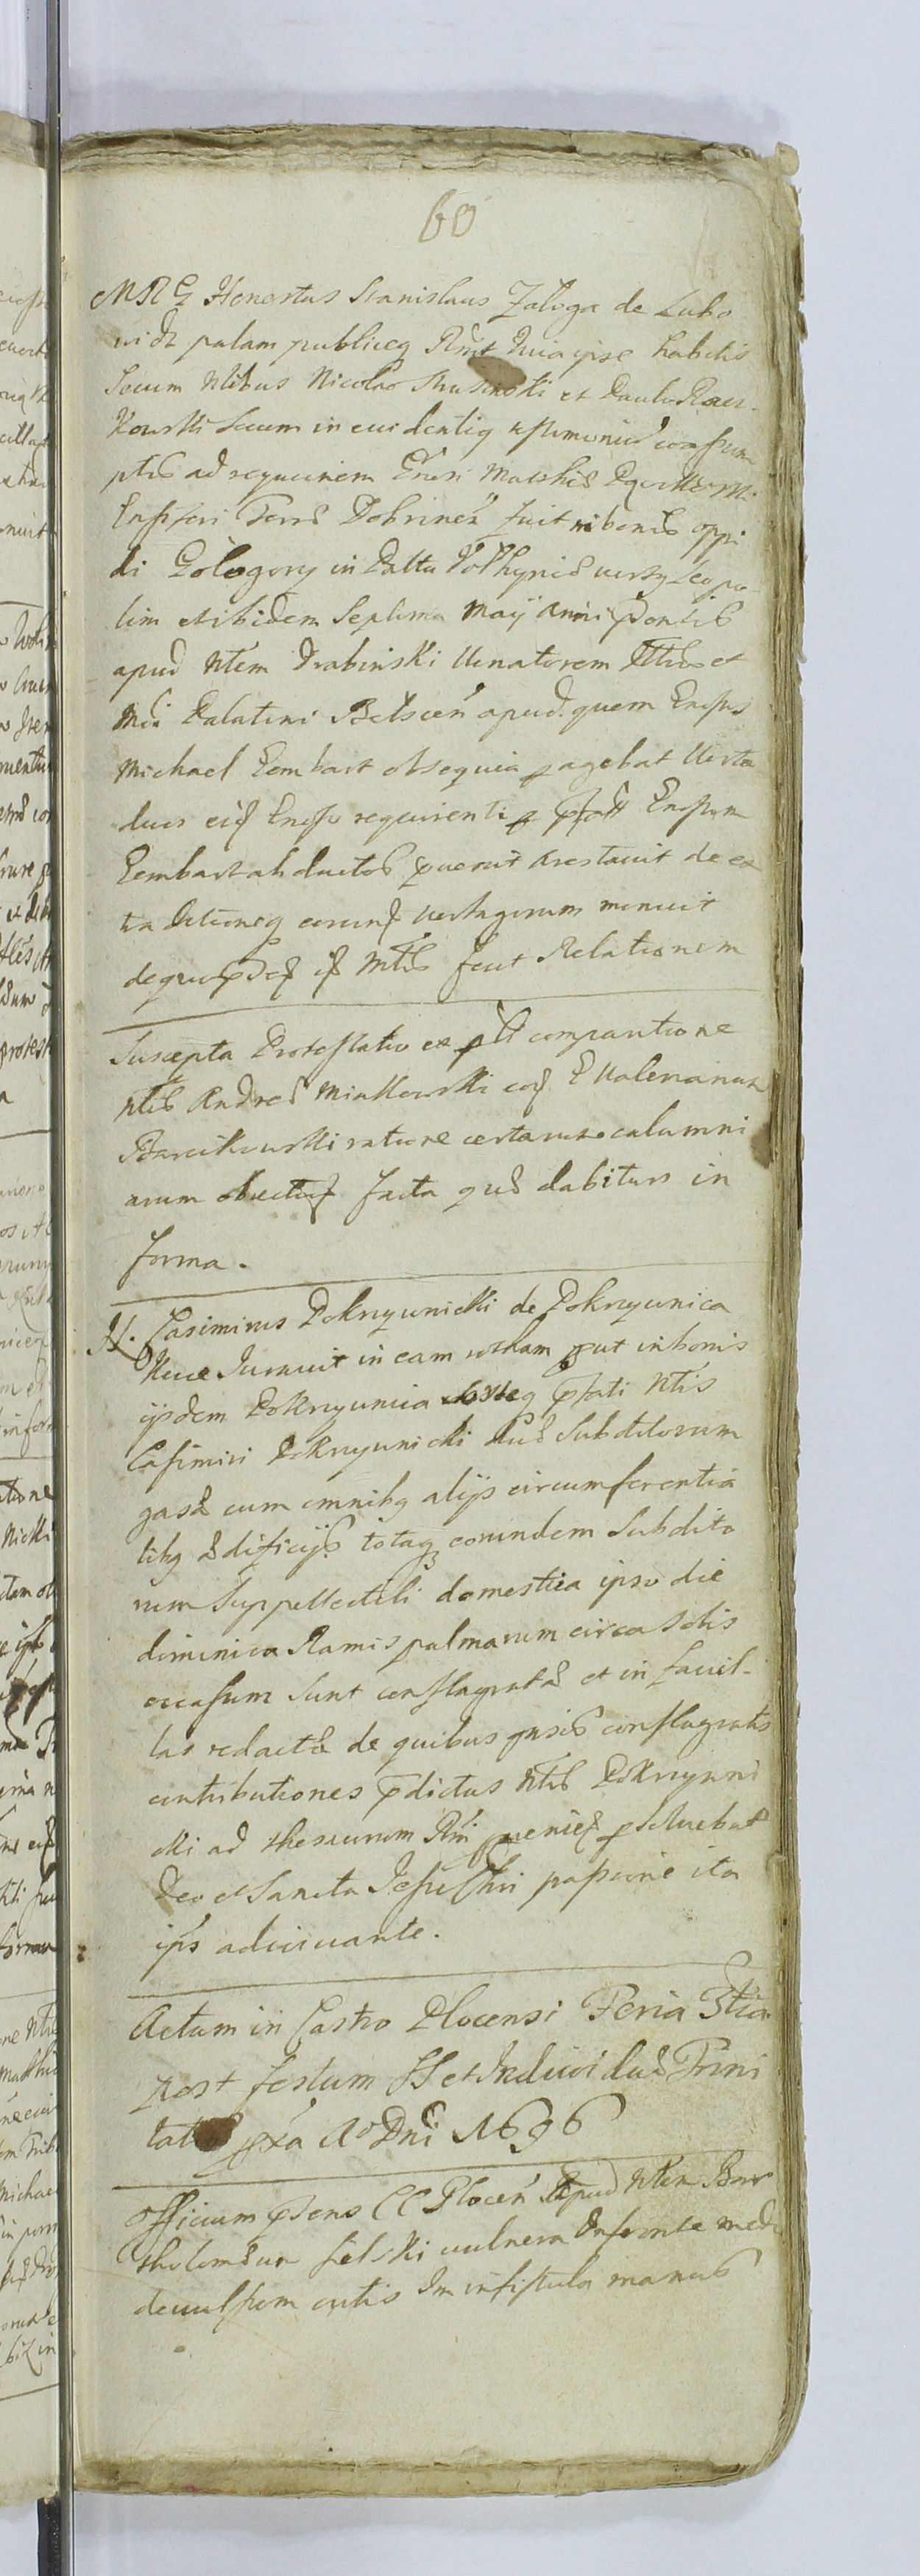 60
MRG Honestus Stanislaus Zaloga de Lubo
widz palam publiceq Rnt Quia ipse habitis
Secum Ntibus Nicolao et Paulo Racz
kowski Secum in euidentiq testimoniu consum
ptis ad requisinem Gnesi Mathie
Ensiferi Terre Dobrinen fuit in bonis oppi
di Gologory in Palttu Volhynie versq Leopo
lim et ibidem Septima Maij Anni Pontis
apud Ntem Drabinski Venatorem Illtris et
Mci Palatini Belscen apud quem Gnesus
Michael Gembart obsequia pagebat Verta
duos eisq Gneso requirenti p Gnesum
Gembart abductos Arestauit de ex
traditioneq eorunq Vertagorum monuit
dequo pdeq isq Mtis fecit Relationem
Suscepta Protestatio ex pti comparitione
Ntis Andree Minkowski coq G Valerianum
Barcikowski ratione certarum calumni
arum obiectarq facta que dabitur in
forma.
N. Casimirus Pokrzywnicki de Pokrzywnica
Nece Jurauit in eam rotham qut in bonis
ijsdem Pokrzywnica pfati Ntis
Casimiri Pokrzywnicki due Subditorum
gase cum omnibq alijs circumferentia
libq edificijs totaq eorundem Subdito
rum Suppellectili domestica ipso die
dominica Ramis palmarum circa Solis
occasum Sunt conflagrate et in fauil-
las redacte de quibus gasis conflagratis
contributiones pdictus Ntis Pokrzywni
cki ad thesaurum Rni pueniens psoluebat
Deo et Sancta Jesu Chri passione ita
ips adiuuante.
Actum in Castro Plocensi Feria 3tia
post festum SS et Indiuidue Trini
tatis pxa Ao Dni 1696
Officium psens CC Plocen Apud Ntem Bar
tholomeum Selski vulnera Inferente
deuulsiom cutis Im infistula manus